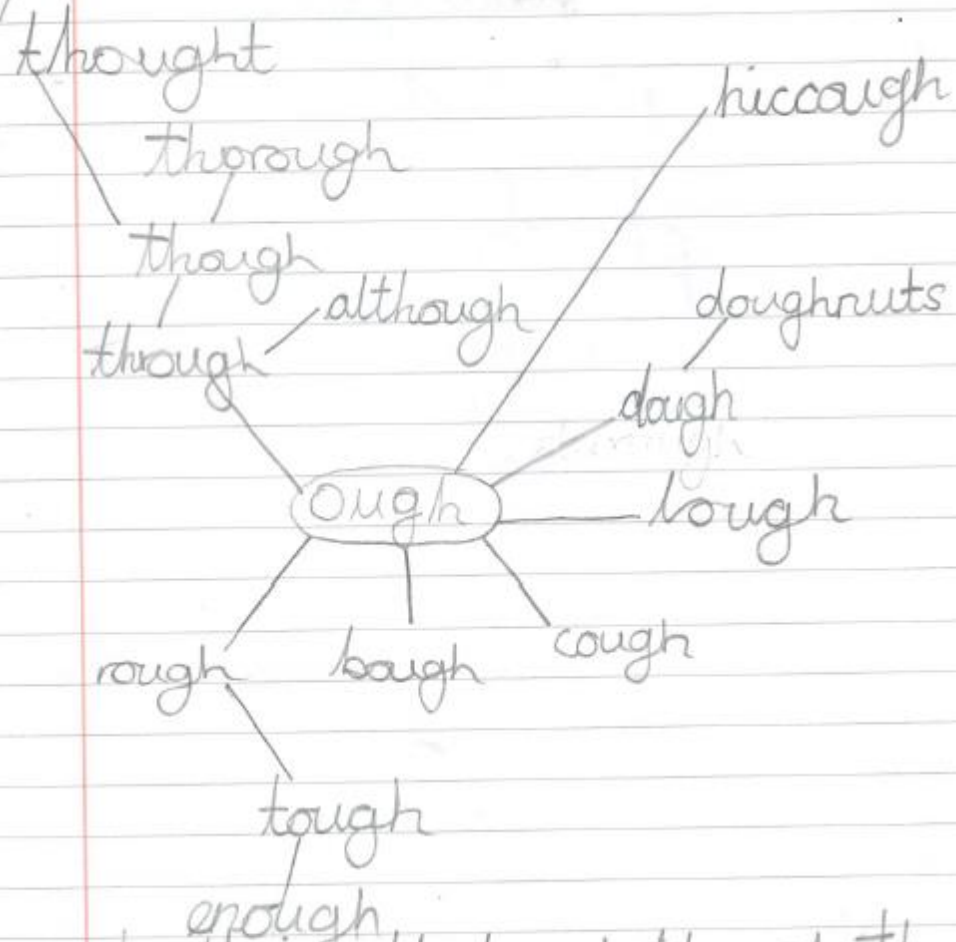 thought
hiccough
thorough
though
although
doughnuts
through
dough
ough
lough
rough
bough
cough
tough
enough